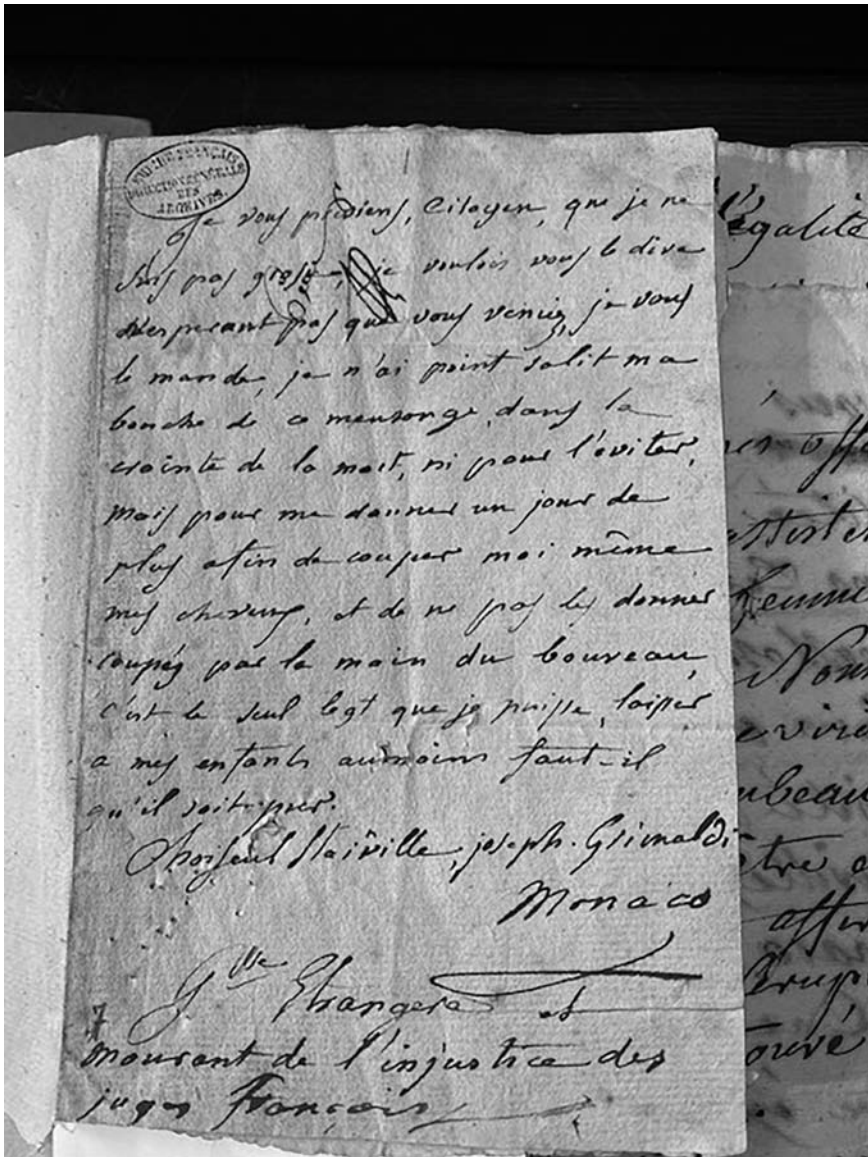 EMPIRE FRANÇAIS
DIRECTION GÉNÉRALE
DES
ARCHIVES
Je vous préviens, Citoyen, que je ne
suis pas grosse, je voulois vous le dire
n'esperant pas que vous veniez, je vous
le mande, je n'ai point salit ma
bouche de ce mensonge dans la
crainte de la mort, ni pour l'éviter,
mais pour me donner un jour de
plus afin de couper moi même
mes cheveux, et de ne pas les donner
coupés par la main du boureau,
c'est le seul legt que je puisse, laisser
a mes enfants aumoins faut-il
qu'il soit pur.
Choiseul Stainville, joseph. Grimaldi
Monaco
Etrangere et
mourant de l'injustice des
juges François
7
l'égalité
femme